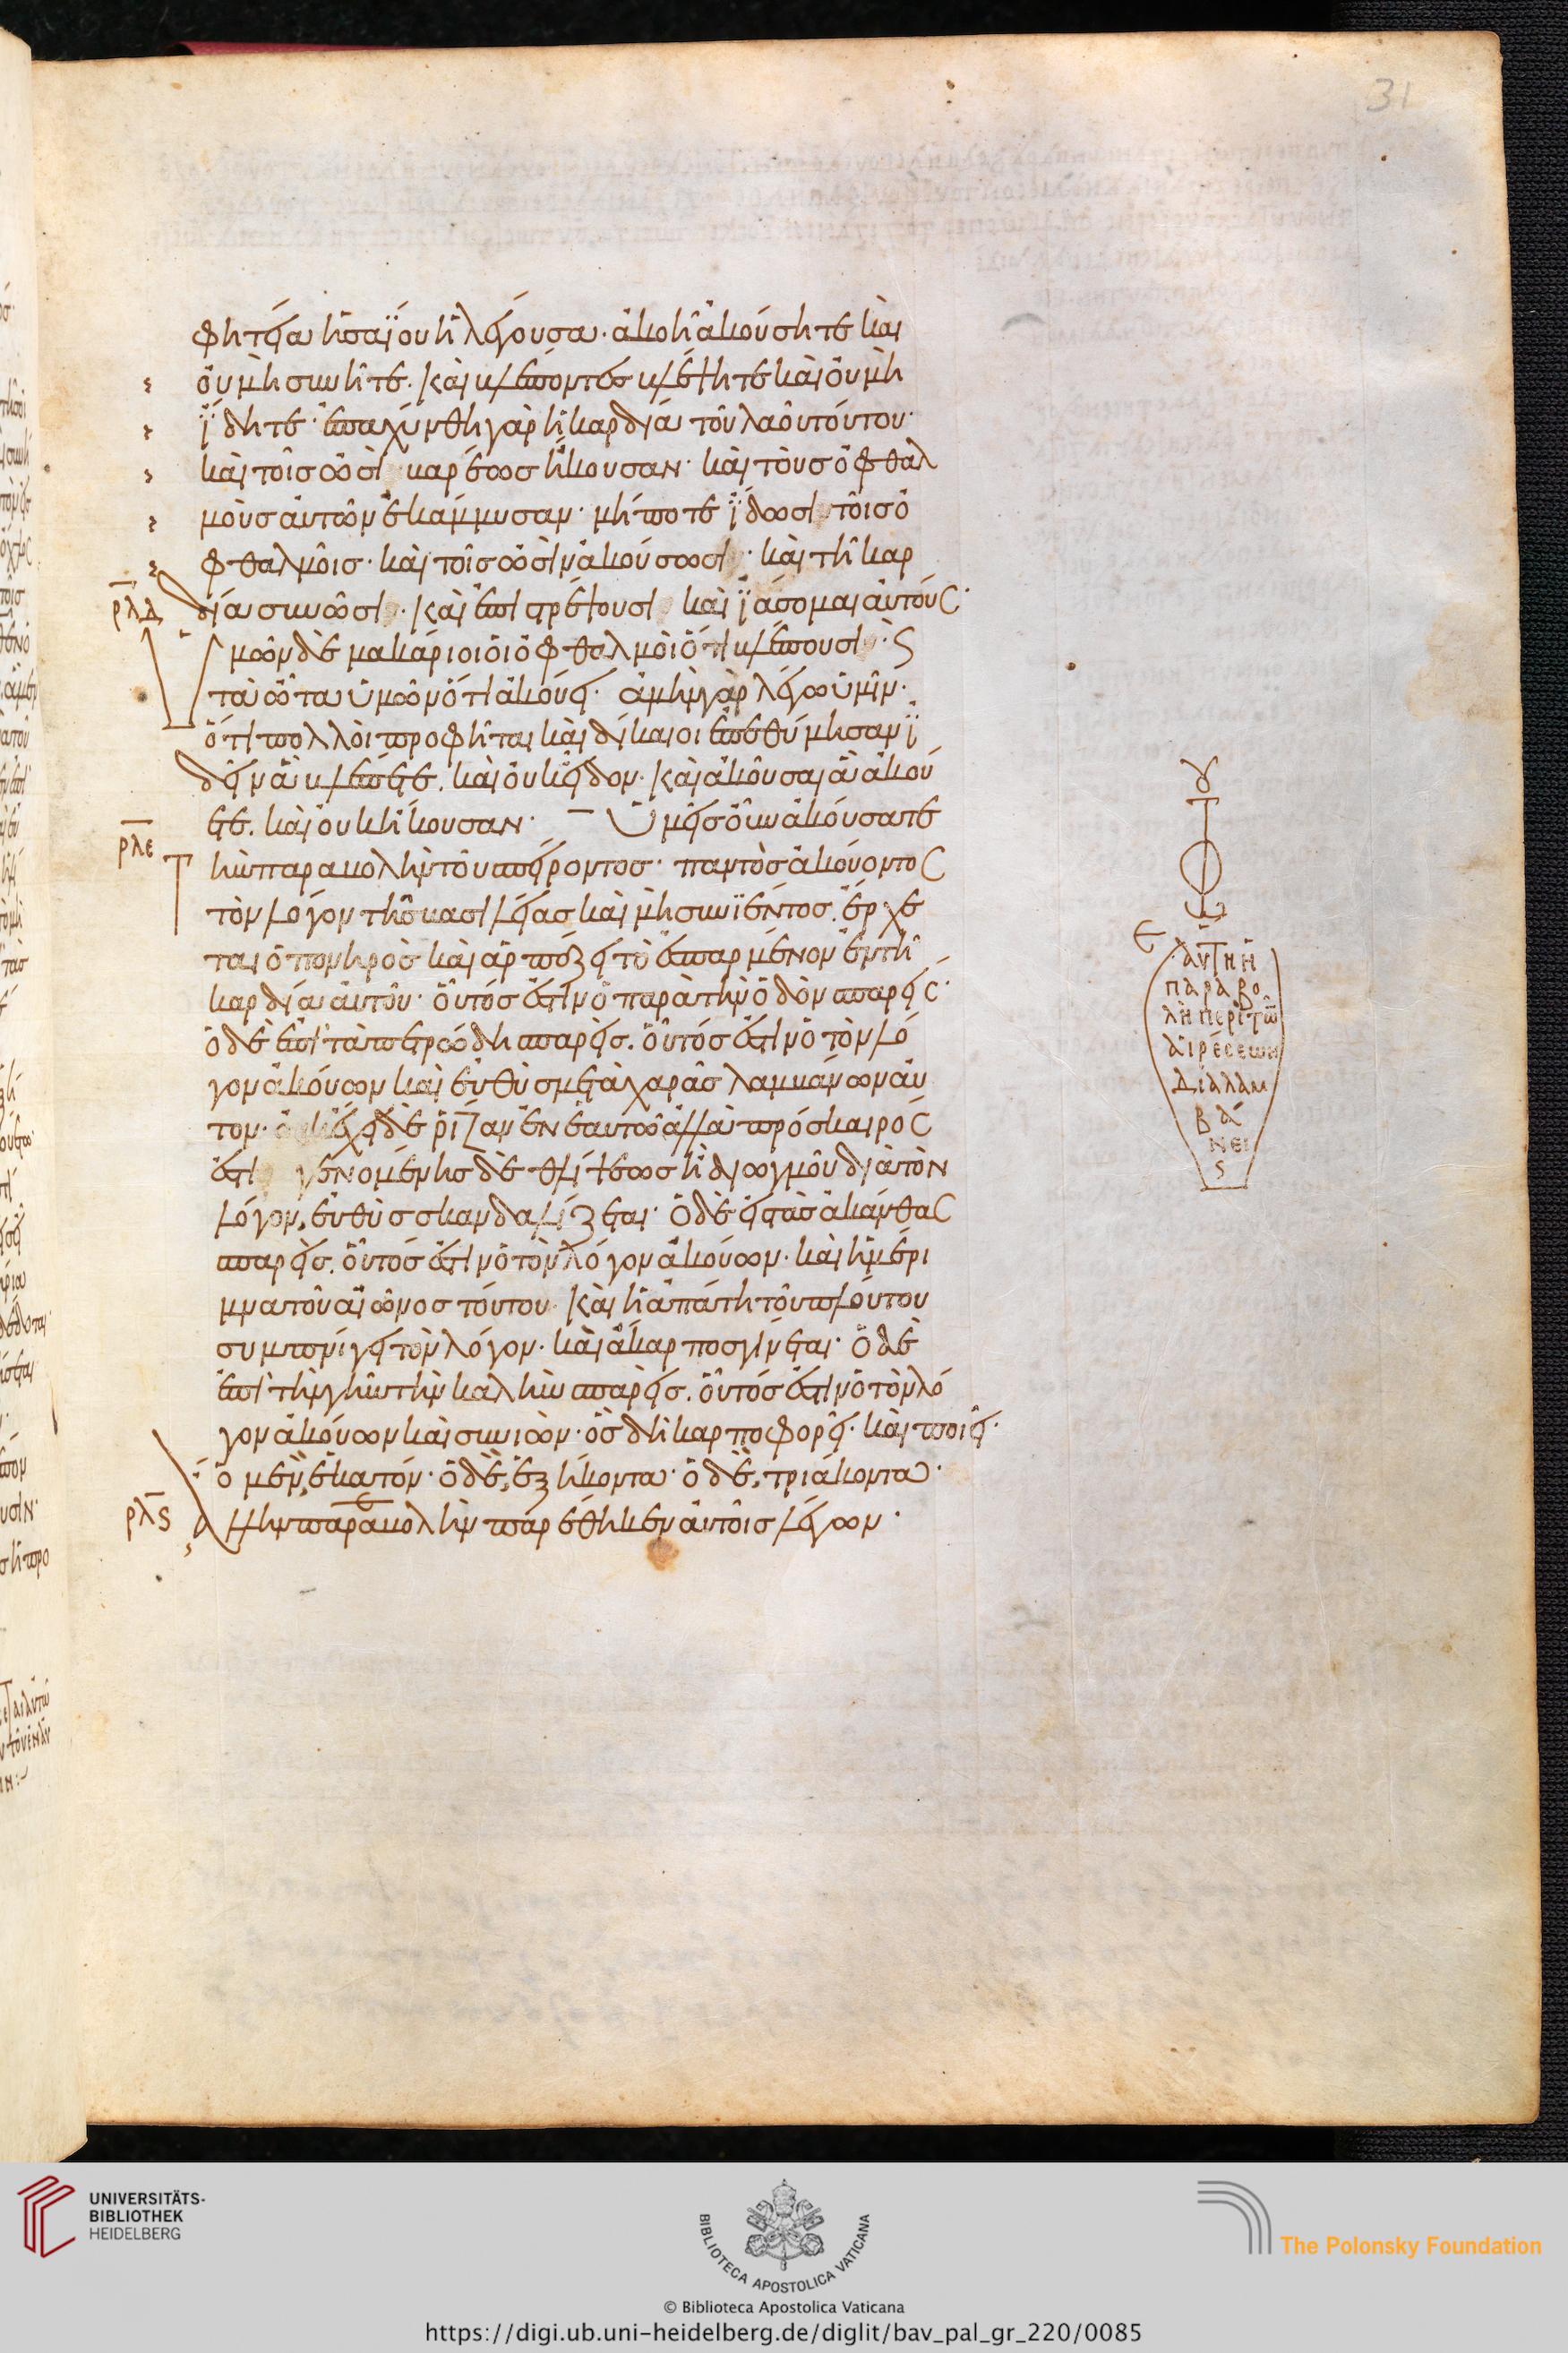 31
φητεία ἡσαΐου ἡ λέγουσα· ἀκοῆ ἀκούσητε καὶ
οὐ μὴ συνῆτε. Καὶ βλέποντες βλέψητε καὶ οὐ μὴ
ἴδητε· ἐπαχύνθη γὰρ ἡ καρδία τοῦ λαοῦ τούτου·
καὶ τοῖς ὠσὶ βαρέως ἤκουσαν· καὶ τοὺς ὀφθαλ
μοὺς αὐτῶν ἐκάμμυσαν· μήποτε ἴδωσι τοῖς ὀ
φθαλμοῖς· καὶ τοῖς ὠσὶν ἀκούσωσι· καὶ τῆ καρ
ρλδ δία συνῶσι. Καὶ ἐπιστρέψουσι καὶ ἰάσομαι αὐτούς·
Ὑμῶν δὲ μακάριοι οἱ ὀφθαλμοὶ ὅτι βλέπουσι· καὶ
τὰ ὦτα ὑμῶν ὅτι ἀκούει· ἀμὴν γὰρ λέγω ὑμῖν·
ὅτι πολλοὶ προφῆται καὶ δίκαιοι ἐπεθύμησαν ἰ
δεῖν ἃ βλέπετε. καὶ οὐκ εἶδον· Καὶ ἀκοῦσαι ἃ ἀκού
ετε. καὶ οὐκ ἤκουσαν· Ὑμεῖς οὖν ἀκούσατε
ρλε τὴν παραβολὴν τοῦ σπείροντος· παντὸς ἀκούοντος
τὸν λόγον τῆς βασιλείας καὶ μὴ συνϊέντος. ἔρχε
ται ὁ πονηρὸς καὶ ἁρπάζει τὸ ἐσπαρμένον ἐν τῆ
καρδία αὐτοῦ· οὗτός ἐστιν ὁ παρὰ τὴν ὁδὸν σπαρείς·
ὁ δὲ ἐπὶ τὰ πετρώδη σπαρείς. οὗτός ἐστιν ὁ τὸν λό
γον ἀκούων καὶ εὐθὺς μετὰ χαρᾶς λαμβάνων αὐ
τον· οὐκ ἔχει δὲ ῥίζαν ἐν ἑαυτῶ ἀλλὰ πρόσκαιρός
ἐστι γενομένης δὲ θλίψεως ἢ διωγμοῦ διὰ τὸν
λόγον, εὐθὺς σκανδαλίζεται· Ὁ δὲ εἰς τὰς ἀκάνθας
σπαρείς. οὗτός ἐστιν ὁ τὸν λόγον ἀκούων· καὶ ἡ μέρι
μνα τοῦ αἰῶνος τούτου· Καὶ ἡ ἀπάτη τοῦ πλούτου
συμπνίγει τὸν λόγον· καὶ ἄκαρπος γίνεται· Ὁ δὲ
ἐπὶ τὴν γῆν τὴν καλὴν σπαρείς. οὗτός ἐστιν ὁ τὸν λό
γον ἀκούων καὶ συνιών· ὃς δὴ καρποφορεῖ· καὶ ποιεῖ·
ὁ μὲν, ἑκατόν· ὁ δὲ, ἑξήκοντα· ὁ δὲ, τριάκοντα·
ρλς Ἄλλην παραβολὴν παρέθηκεν αὐτοῖς λέγων·
Ε
αὕτη ἡ
παραβο
λὴ περὶ τῶ
αἱρέσεων
διαλαμ
βά
νει
UNIVERSITÄTS-
BIBLIOTHEK
HEIDELBERG
BIBLIOTECA APOSTOLICA VATICANA
The Polonsky Foundation
© Biblioteca Apostolica Vaticana
https://digi.ub.uni-heidelberg.de/diglit/bav_pal_gr_220/0085